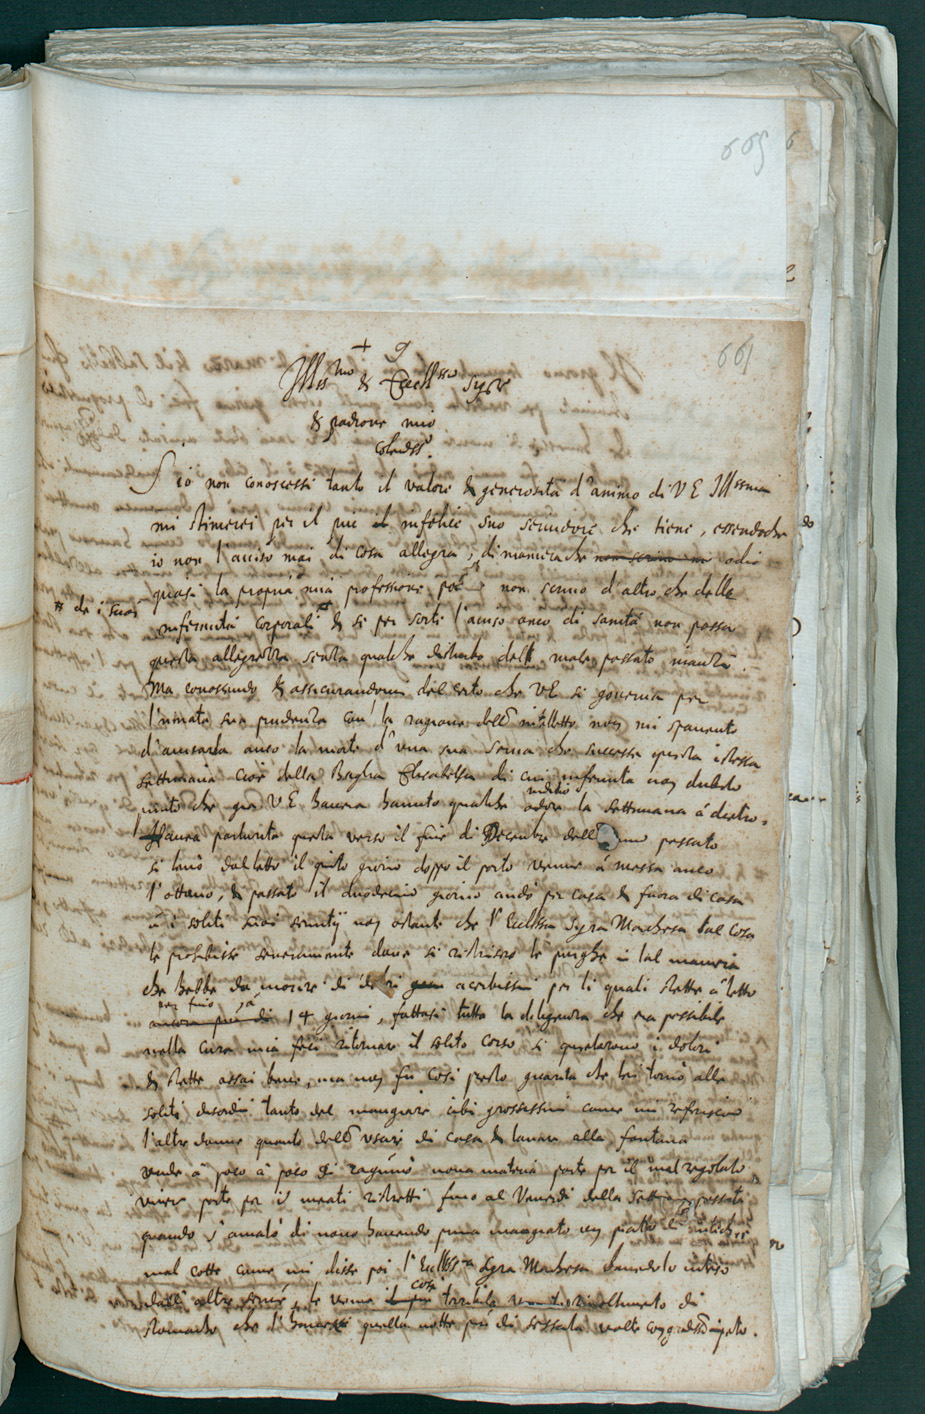 669
661
+ 9
Ill.mo & Eccll.mo Sigre
& padrone mio
Colendss.o
S' io non conoscessi tanto il valore & generosità d'animo di V E Illssma
mi stimerei per il più infelice suo servidore che tiene, essendo che
io non l'auiso mai di cosa allegra, di maniera che odio
quasi la propria mia professione non scriuo d'altro, che delle
* de i suoi
infirmità corporali & se per sorte l'auiso anco di sanità non passa
questa allegrezza senza qualche disturbo del male passato inanzi.
Ma conoscendo & assicurandomi del certo che VE si gouerna per
l'innata sua prudenza con la ragione dell intelletto non mi spauento
d'auisarla anco la morte d'una sua serua che successe questa istessa
settimana cioè della Baglia Elisabetta di cui infirmità non dubito
punto che già V E hauera hauuto qualche indicio la settimana à dietro.
Haueua partorito questa verso il fine di Decembre dell anno passato
si leuò dal letto il quinto giorno doppo il parto venne à messa anco
l'ottauo, & passato il duodecimo giorno andò per casa & fuora di casa
à i soliti suoi seruitij non ostante che l'Ecclssma Sigra Marchesa tal cosa
le prohibisse seueramente doue si ristrinsero le purghe in tal maniera
che hebbe da morire di dolori acerbissimi per li quali stette à letto
per fino à 14 giorni, fattasi tutta la diligenza che era possibile
nella cura mia feci ritornare il solito corso si quietarono i dolori
& stette assai bene, ma non fù così presto guarita che lei tornò alle
soliti disordini tanto del mangiare cibi grossissimi come mi referiscono
l'altre donne quanto dell' uscire di casa & lauare alla fontana
onde à poco à poco si ragunò noua materia parte per il mal regolato
viuere parte per i meati ristretti fino al Venerdi della settimana passata
quando s'amalò di nouo hauendo prima mangiato un piatto di
mal cotte come mi disse poi l'Eccllssma Sigra Marchesa hauendolo inteso
dall' altre serue, le venne così terribile riuoltamento di
stomacho che d' quella notte più di sessanta volte con grandissimo impeto.